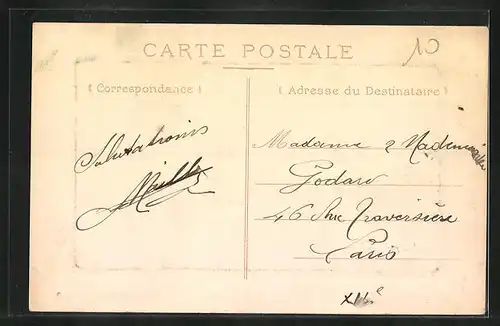 CARTE POSTALE
10
( Correspondance )
( Adresse du Destinataire )
Salutations
Madame & Mademoiselle
Godard
46 Rue Traversière
Paris
XIIe